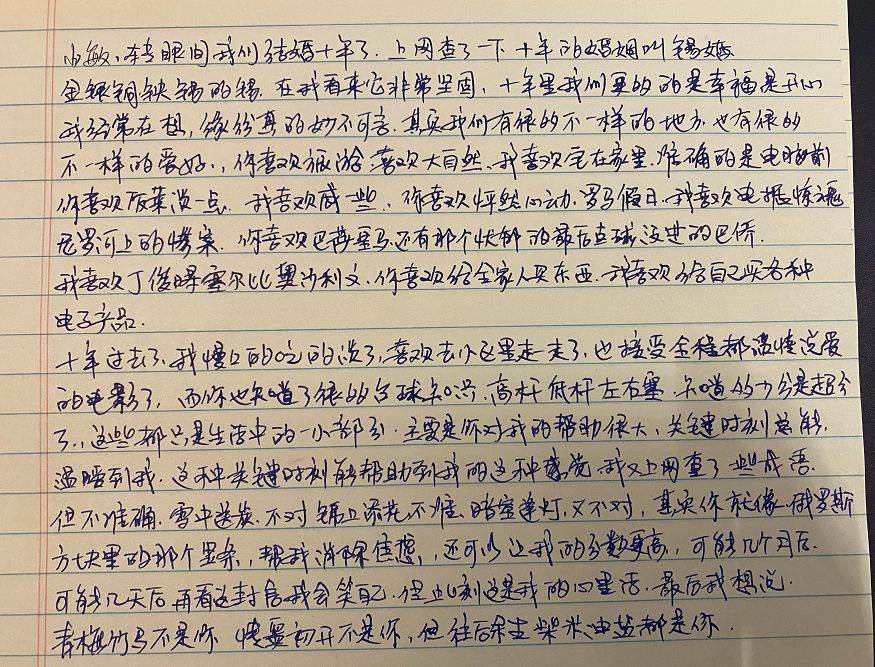 小敏，转眼间我们结婚十年了．上网查了一下十年的婚姻叫锡婚
金银铜铁锡的锡．在我看来它非常坚固，十年里我们更多的是幸福是开心
我经常在想，缘份真的妙不可言．其实我们有很多不一样的地方也有很多
不一样的爱好．，你喜欢旅游喜欢大自然．我喜欢宅在家里．准确的是电脑前
你喜欢饭菜淡一点．我喜欢咸一些．你喜欢怦然心动．罗马假日．我喜欢电锯惊魂
尼罗河上的惨案．你喜欢巴蒂 罗马还有那个忧郁的最后点球没进的巴乔．
我喜欢丁俊晖塞尔比奥沙利文．你喜欢给全家人买东西．我喜欢给自己买各种
电子产品．
十年过去了．我慢慢的吃的淡了，喜欢去小区里走一走了，也接受全程都温情说爱
的电影了，而你也知道了很多台球知识．高杆低杆左右塞．知道多少分是超分
了．，这些都只是生活中的一小部分．主要是你对我的帮助很大、关键时刻总能．
温暖到我．这种关键时刻能帮助到我的这种感觉 我又上网查了一些成语．
但不准确．雪中送炭．不对 锦上添花不准．暗室逢灯．又不对．其实你就像俄罗斯
方块里的那个竖条，帮我消除焦虑，还可以让我的分数更高，可能几个月后．
可能几天后再看这封信我会笑自己．但此刻这是我的心里话．最后我想说．
青梅竹马不是你 情窦初开不是你，但往后余生柴米油盐都是你．